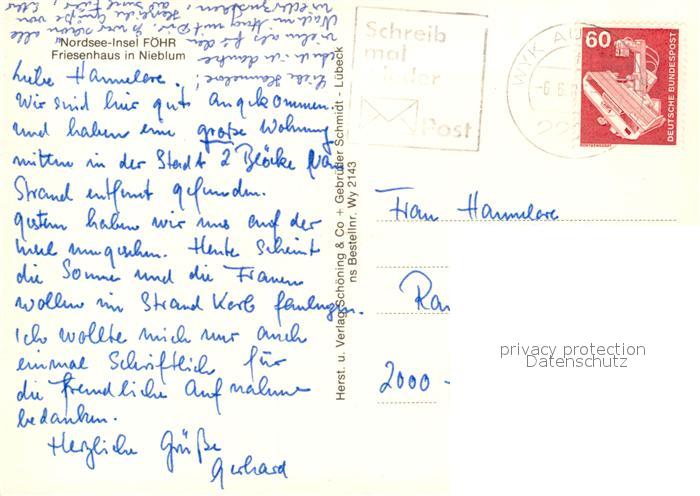 Nordsee-Insel FÖHR
Friesenhaus in Nieblum
Liebe Hannelore!
Liebe Hannelore.
Wir sind hier gut angekommen
und haben eine große Wohnung
mitten in der Stadt 2 Blöcke vom
Strand entfernt gefunden.
Gestern haben wir uns auf der
Insel umgesehen. Heute scheint
die Sonne und die Frauen
wollen im Strand Korb faulenzen.
Ich wollte mich nur auch
einmal Schriftlich für
die freundliche Aufnahme
bedanken.
Herzliche Grüße
Gerhard
Herst. u. Verlag Schöning & Co + Gebrüder Schmidt - Lübeck
ns Bestellnr. Wy 2143
Schreib
mal
wieder
Post
WYK AU
-6.6.
22
60
DEUTSCHE BUNDESPOST
RÖNTGENGERÄT
Frau Hannelore
2000
privacy protection
Datenschutz